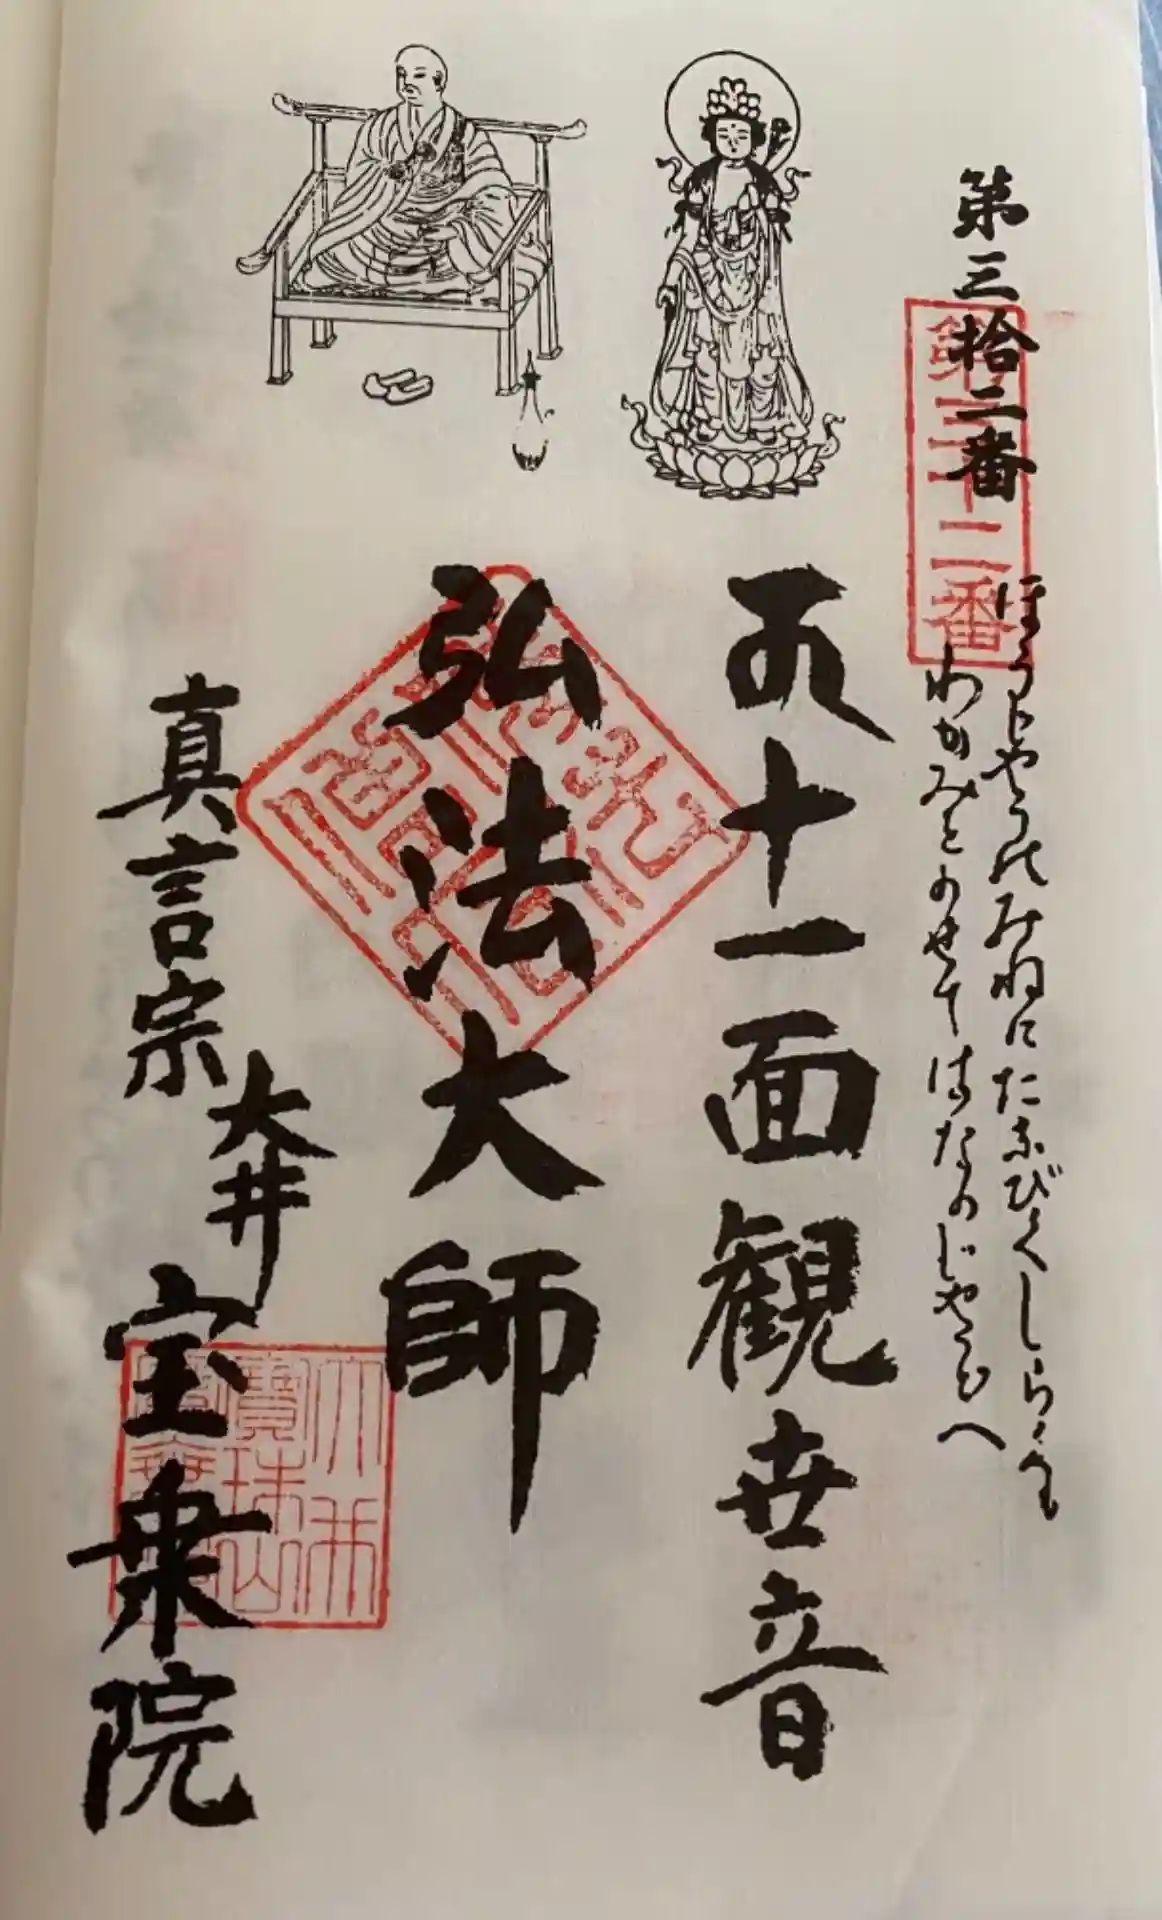 第三拾二番
第三十二番
ほうじやうのみねにたなびくしらくも
わがみをのせてはなのじやうどへ
十一面観世音
弘法大師
真言宗
大井
宝乗院
大井
寶珠山